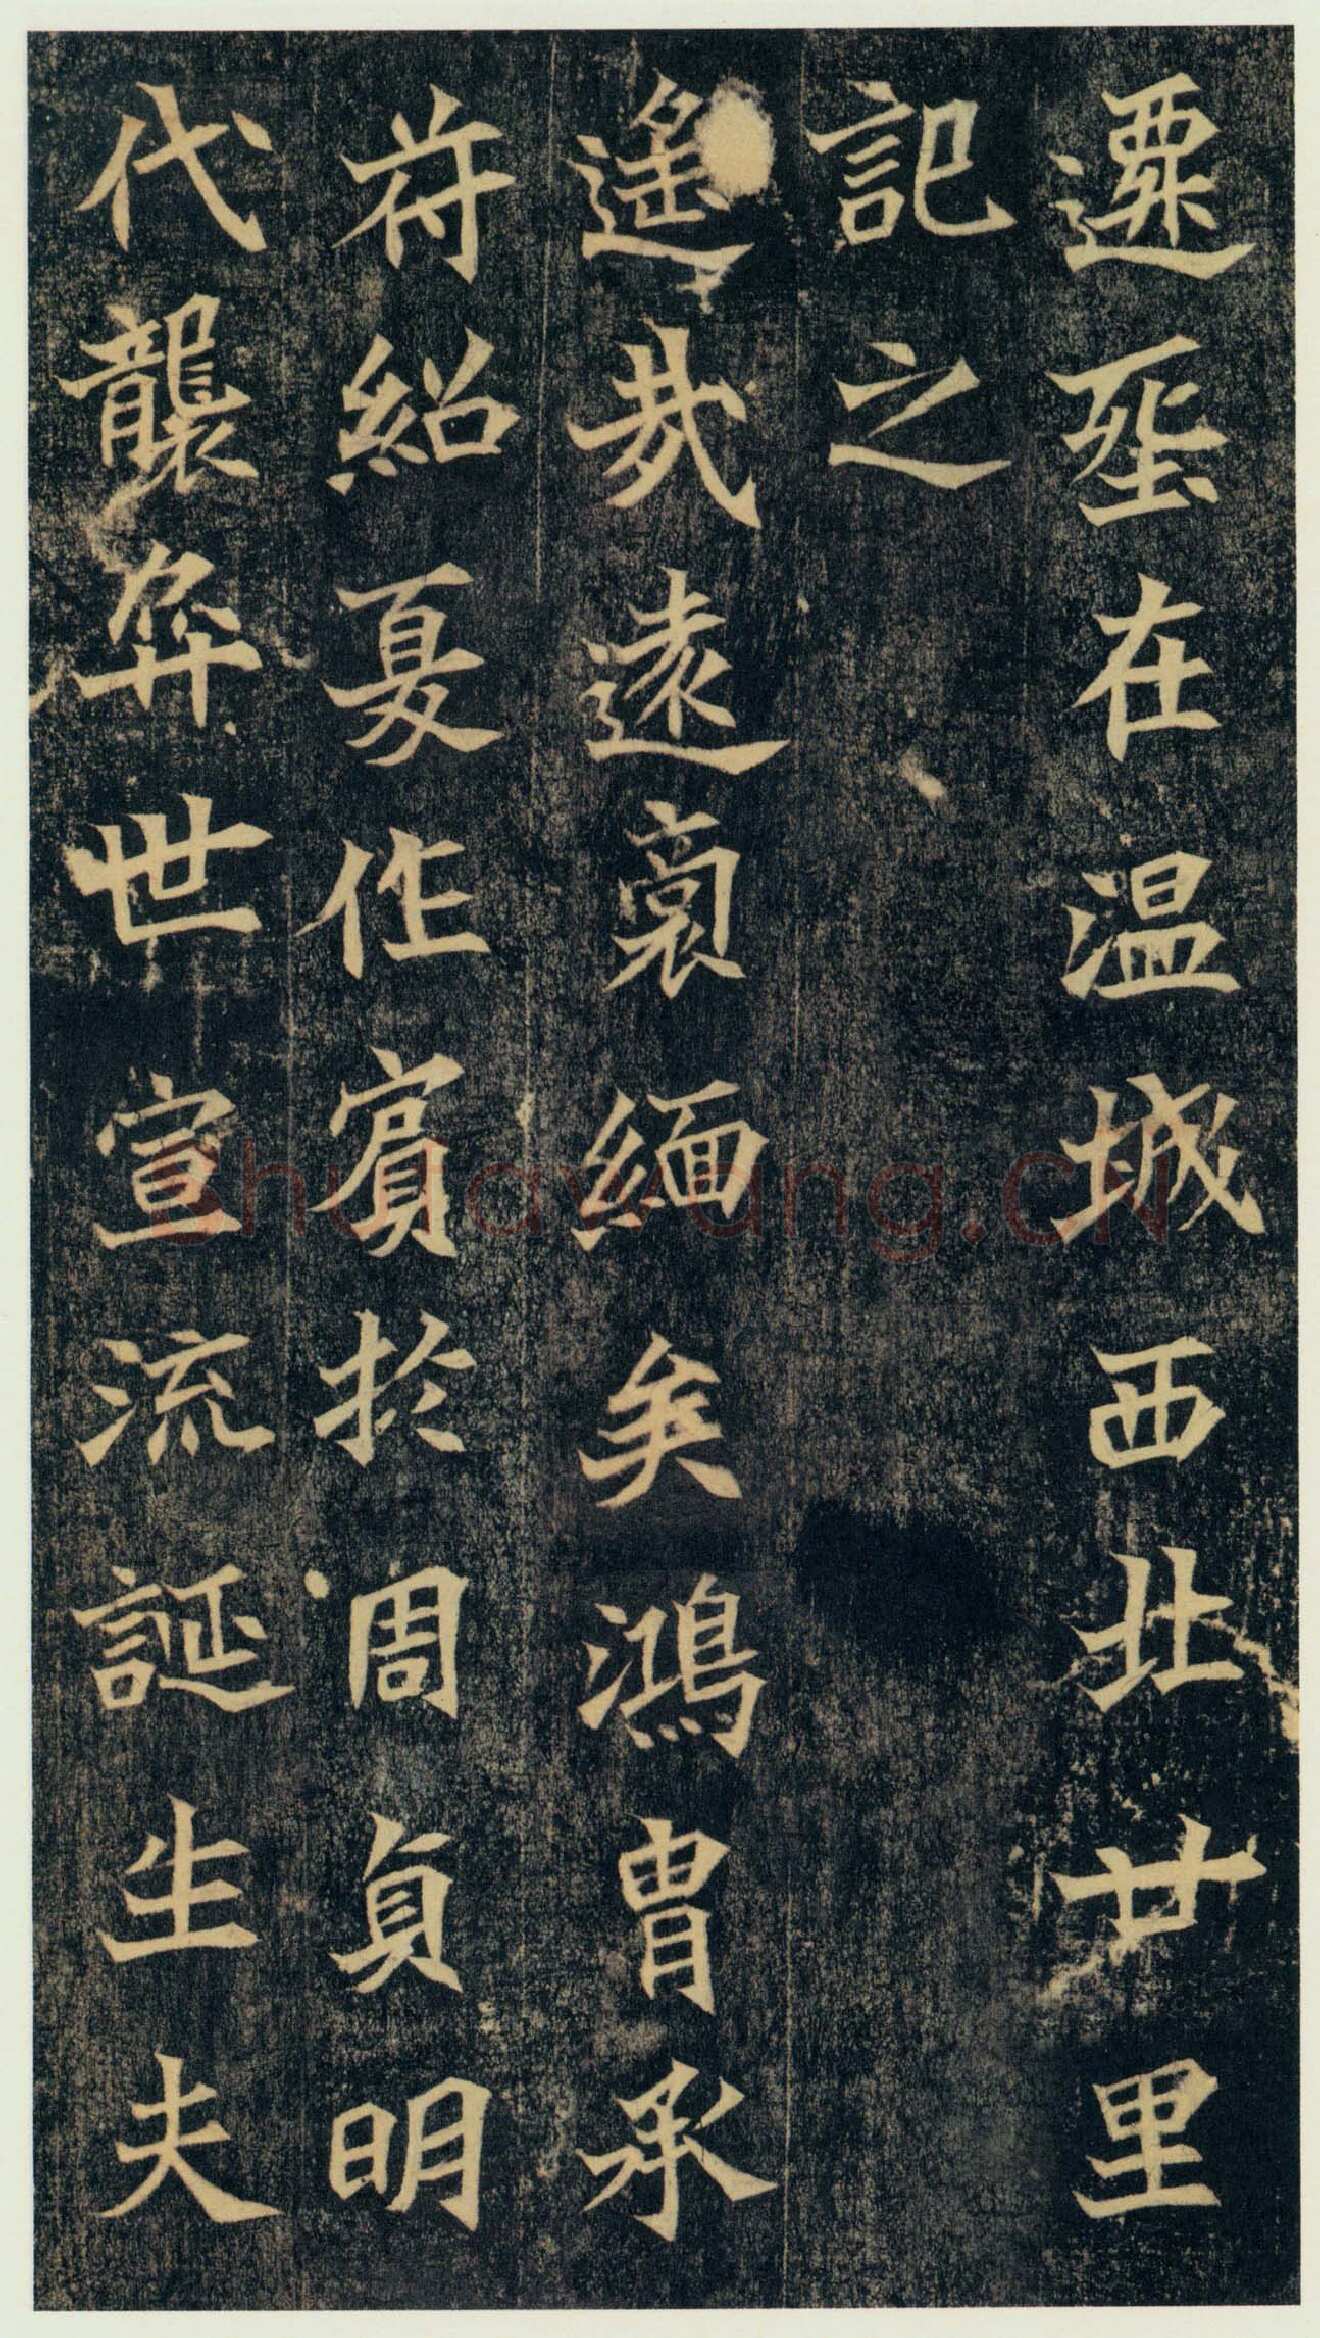 遷堲在温城西北廿里
記之
遙哉遠裔緬矣鴻胄承
苻紹夏作賓於周貞明
代襲弈世宣流誕生夫
Shufawang.CN